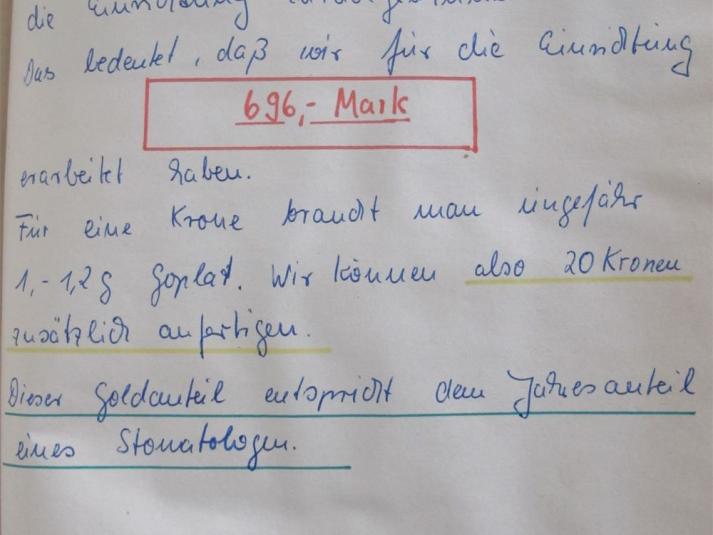 die Einrichtung
Das bedeutet, daß wir für die Einrichtung
696,- Mark
erarbeitet haben.
Für eine Krone braucht man ungefähr
1,- 1,2 g Goplat. Wir können also 20 Kronen
zusätzlich anfertigen.
Dieser Goldanteil entspricht dem Jahresanteil
eines Stomatologen.